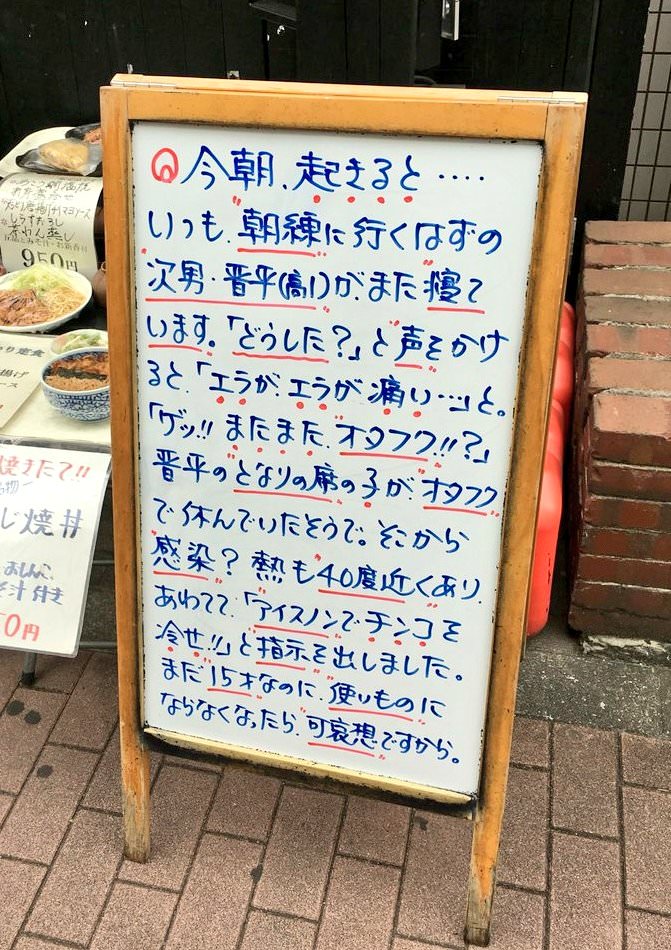 今朝、起きると‥‥
いつも、朝練に行くはずの
次男・晋平(高1)が、また寝て
います。「どうした?」と声をかけ
ると、「エラが、エラが痛い…」と。
「ゲッ!! またまた、オタフク!!?」
晋平のとなりの席の子が、オタフク
で休んでいたそうで。そこから
感染? 熱も40度近くあり、
あわてて、「アイスノンでチンコを
冷せ!!」と指示を出しました。
まだ15才なのに、使いものに
ならなくなったら、可哀想ですから。
茶わん蒸し
950円
り定食
揚げ
ース
焼きたて!!
じ焼丼
おしんこ
汁付き
0円